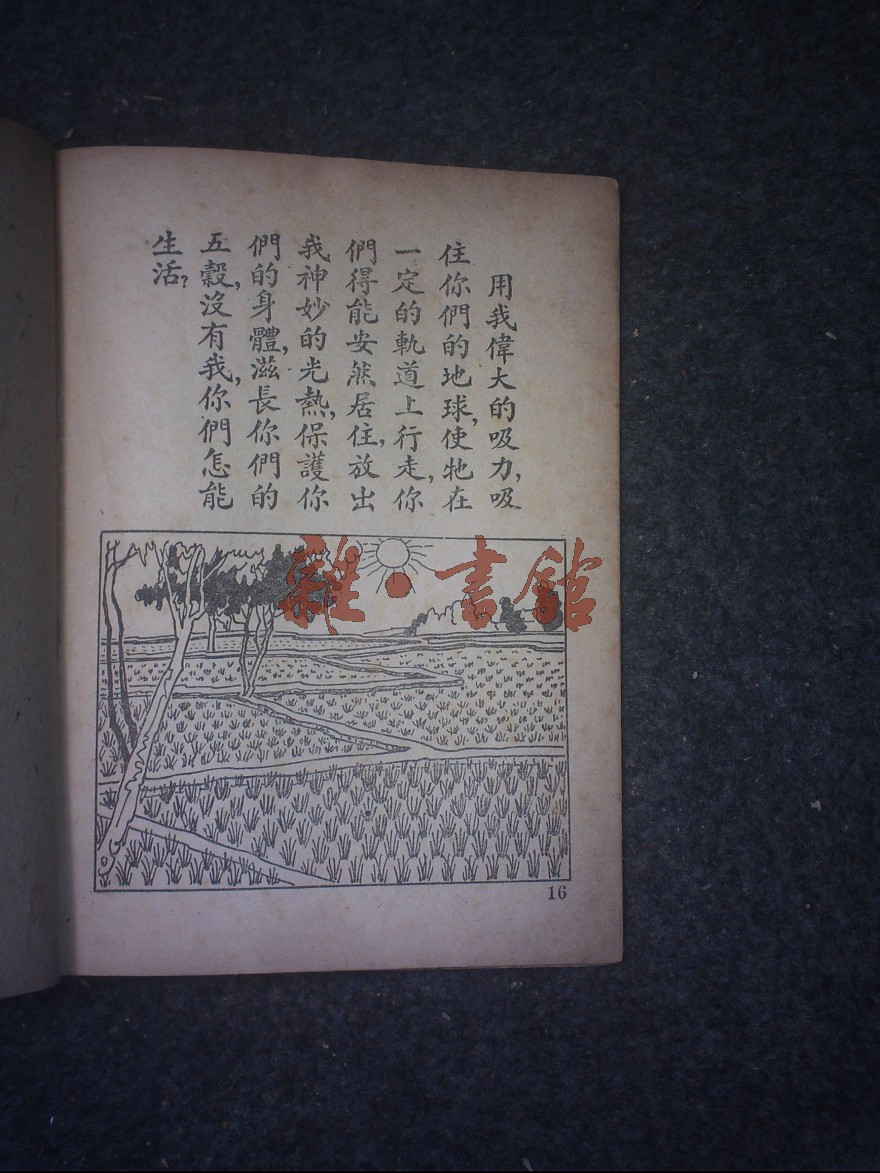 用我偉大的吸力，吸
住你們的地球，使牠在
一定的軌道上行走，你
們得能安然居住，放出
我神妙的光熱，保護你
們的身體，滋長你們的
五穀，沒有我，你們怎能
生活？
雜·書館
16